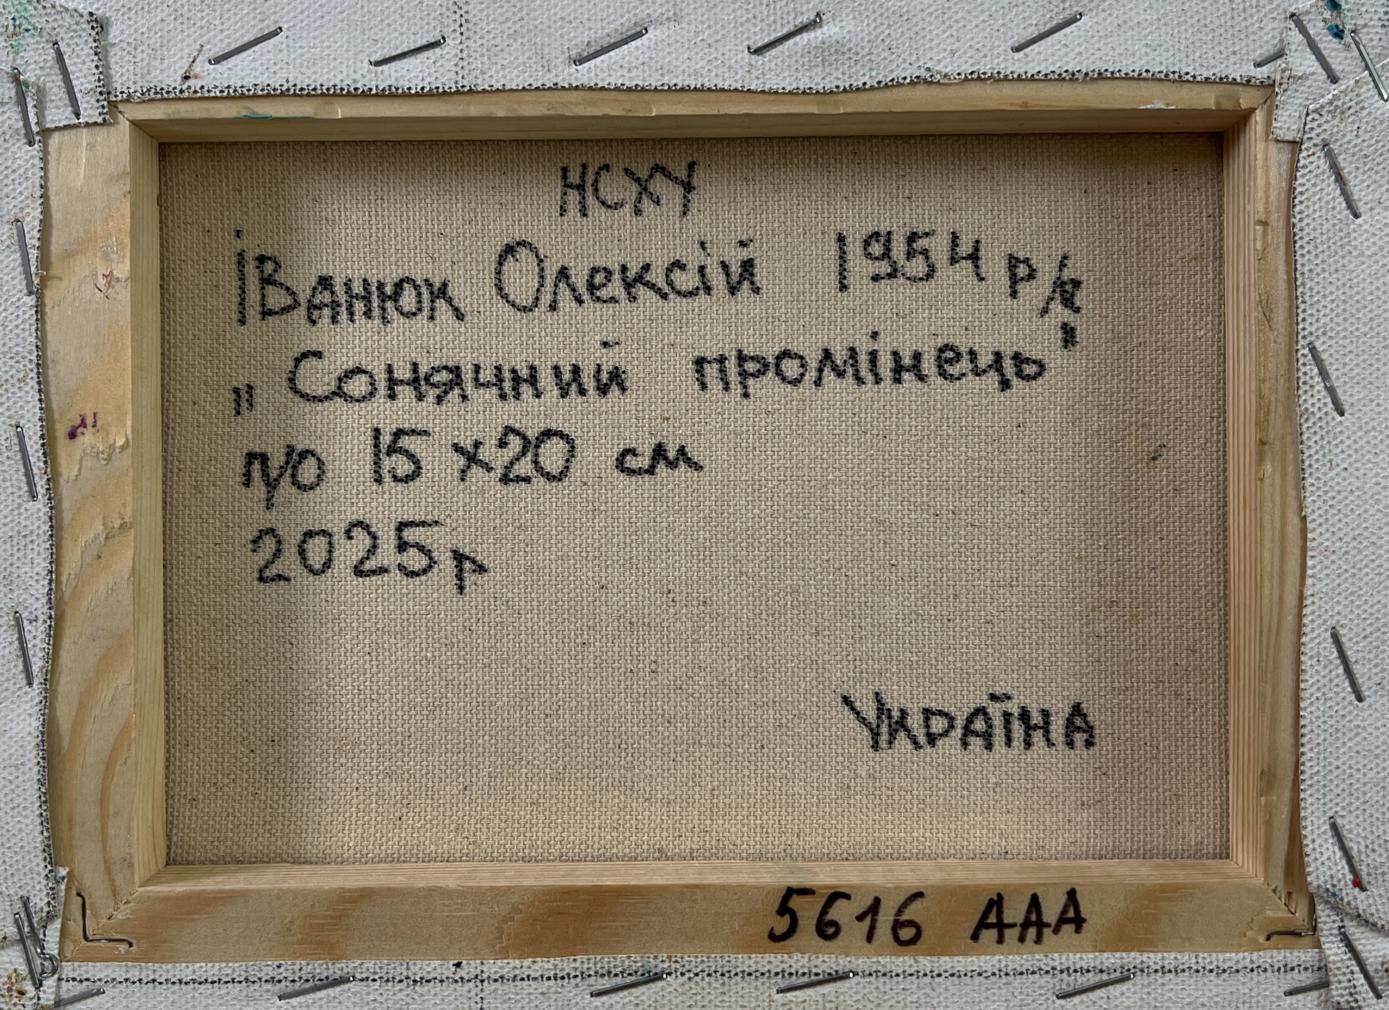 НСХУ
Іванюк Олексій 1954 р/
„Сонячний промінець"
п/о 15х20 см
2025р
Україна
5616 ААА